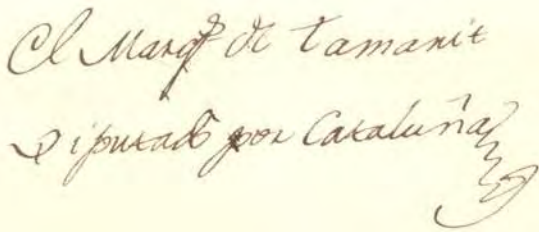 El Marqs de Tamarit
Diputado por Cataluña